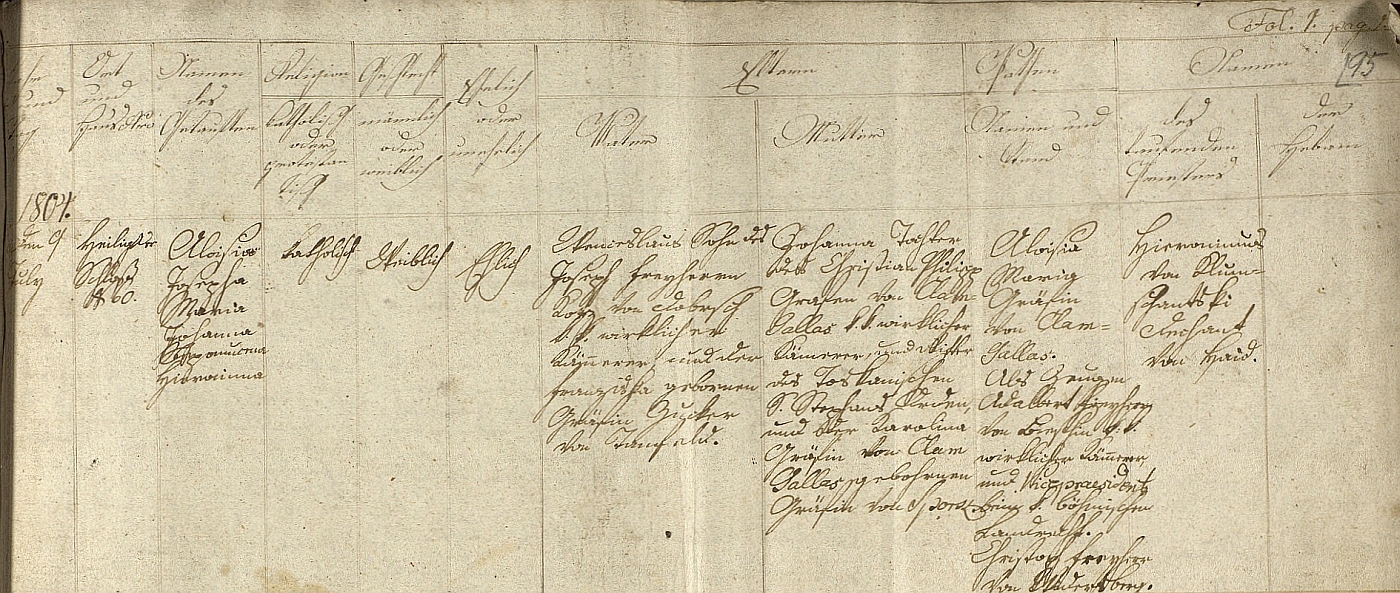 Fol. 1. pag. 1.
195
Ort
und
HausNro
Namen
des
Getauften
Religion
Catholisch
oder
protestan
tisch
Geschlecht
männlich
oder
weiblich
Ehelich
oder
unehelich
Eltern
Vater
Mutter
Pathen
Namen und
Stand
Namen
des
taufenden
Priesters
der
Hebam
1804.
den 9
July
Heiligen
Schloß
N 60.
Aloisia
Josepha
Maria
Johanna
Nepomucena
Hieronima
Katholisch
Weiblich
Ehlich
Wenceslaus Sohn des
Joseph Freyherrn
Kotz von Dobrsch
k. k. wirklicher
Kämmerer, und der
Franziska gebornen
Gräfin
von
Johanna Tochter
des Christian Philipp
Grafen von Clam-
Gallas k. k. wirklicher
Kamerer, und Ritter
des Toskanischen
S. Stephans Orden,
und der Karolina
Gräfin von Clam
Gallas gebohrnen
Gräfin von Spork
Aloisia
Maria
Gräfin
von Clam-
Gallas.
Als Zeugen
Adalbert Freyherr
von k. k.
wirklicher Kämerer,
und Vicepraesident
beim k. böhmischen
Landrecht.
Christoph Freyherr
von
Hieronimus
von Klum-
tschantski
Dechant
von Haid.